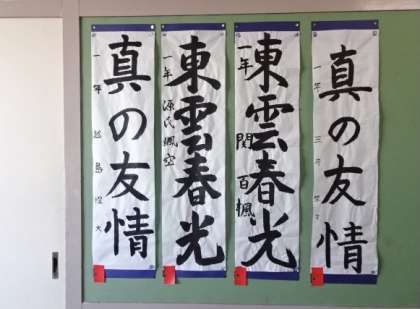 東雲春光
一年 関 百楓
東雲春光
一年 源氏颯空
真の友情
一年
真の友情
一年